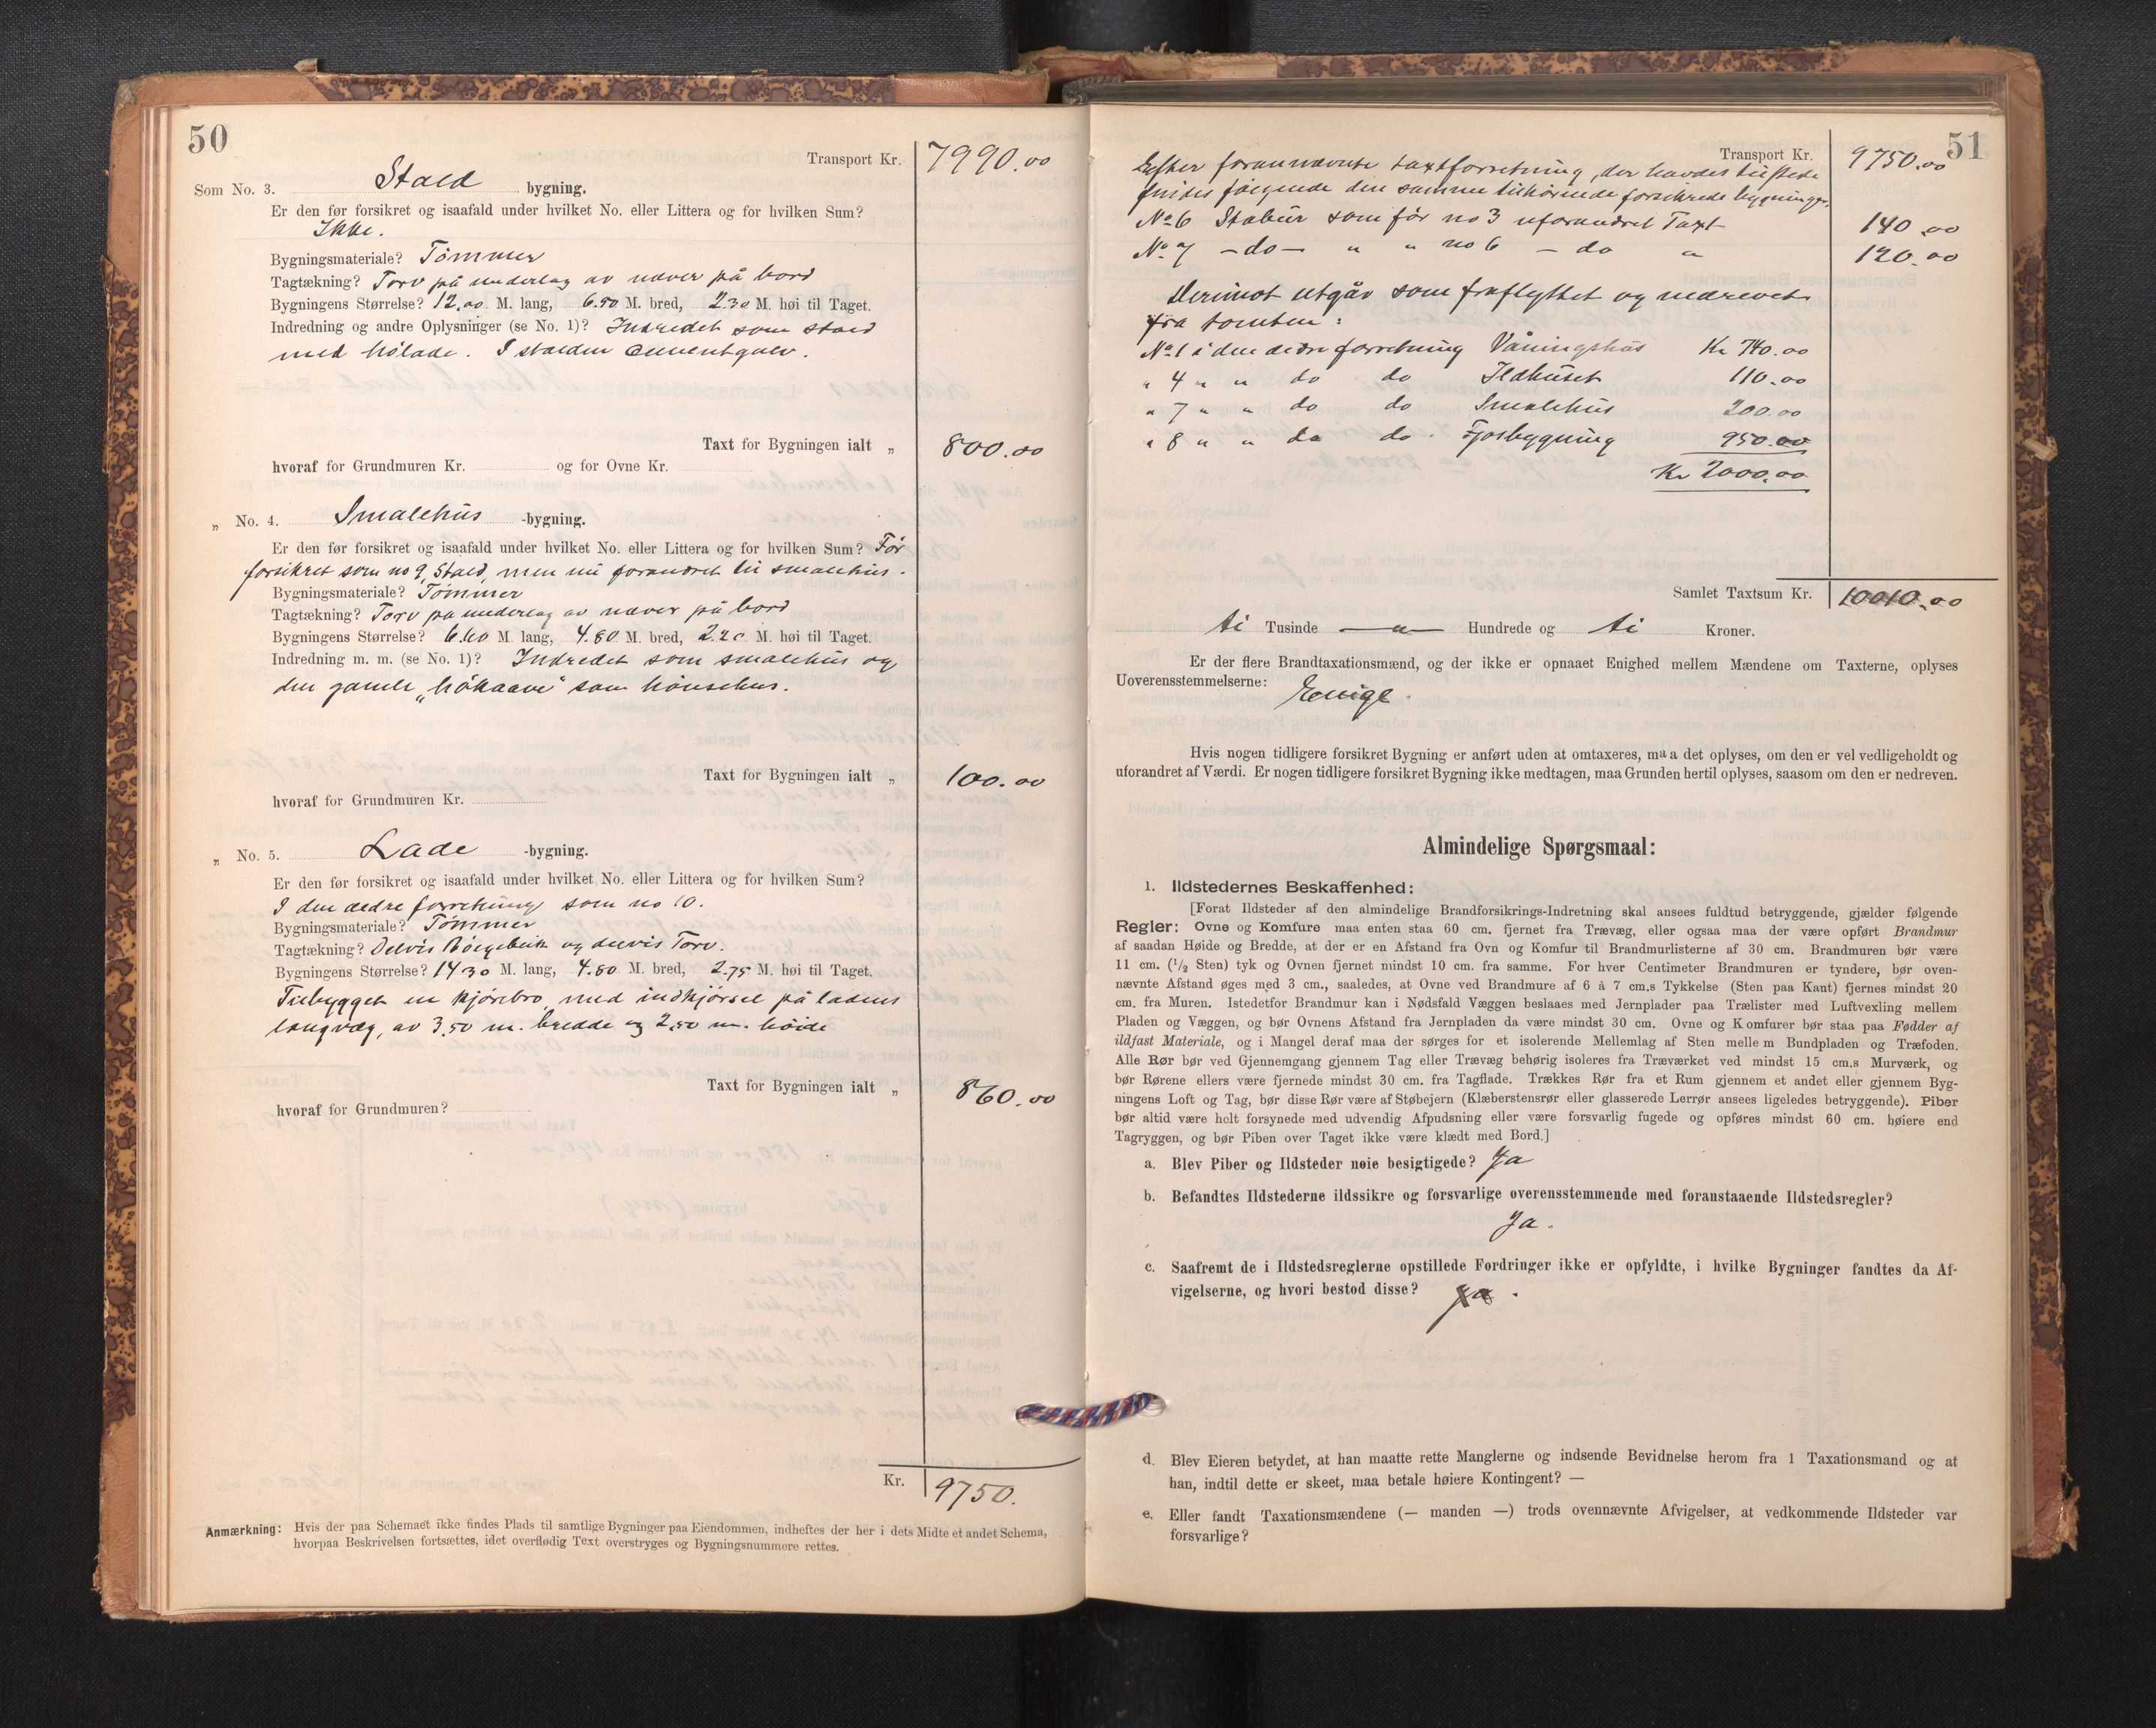 50
Transport Kr. 7990.00
Som No. 3. Stald bygning.
Er den før forsikret og isaafald under hvilket No. eller Littera og for hvilken Sum?
Ikke.
Bygningsmateriale? Tømmer
Tagtækning? Torv på underlag av næver på bord
Bygningens Størrelse? 12.00 M. lang, 6.90 M. bred, 2.30 M. høi til Taget.
Indredning og andre Oplysninger (se No. 1)? Indredet som stald
med hölade. I stalden cementgulv.
Taxt for Bygningen ialt „ 800.00
hvoraf for Grundmuren Kr. og for Ovne Kr.
„ No. 4. Smalehus -bygning.
Er den før forsikret og isaafald under hvilket No. eller Littera og for hvilken Sum? Før
forsikret som no 9, Stald, men nu forandret til smalehus.
Bygningsmateriale? Tømmer
Tagtækning? Torv på underlag av næver på bord
Bygningens Størrelse? 6.60 M. lang, 4.80 M. bred, 2.20 M. høi til Taget.
Indredning m. m. (se No. 1)? Indredet som smalehus og
den gamle som hönsehus.
Taxt for Bygningen ialt „ 100.00
hvoraf for Grundmuren Kr.
„ No. 5. Lade -bygning.
Er den før forsikret og isaafald under hvilket No. eller Littera og for hvilken Sum?
I den ældre forretning som no 10.
Bygningsmateriale? Tømmer
Tagtækning? Delvis Bölgeblik og delvis Torv.
Bygningens Størrelse? 14.30 M. lang, 4.80 M. bred, 2.75 M. høi til Taget.
Tilbygget en kjörebro, med indkjörsel på ladens
langvæg, av 3.50 m. bredde og 2.50 m. höide
Taxt for Bygningen ialt „ 860.00
hvoraf for Grundmuren?
Kr. 9750.
Anmærkning: Hvis der paa Schemaet ikke findes Plads til samtlige Bygninger paa Eiendommen, indheftes der her i dets Midte et andet Schema,
hvorpaa Beskrivelsen fortsættes, idet overflødig Text overstryges og Bygningsnummere rettes.
51
Transport Kr. 9750.00
Efter forannævnte taxtforretning, der havdes tilstede
findes følgende den samme tilhørende forsikrede bygninger.
No 6 Stabur som før no 3 uforandret Taxt 140.00
No 7 - do - " " no 6 - do " 120.00
Derimot utgår som fraflyttet og nedrevet
fra tomten:
No 1 i den ældre forretning Våningshus Kr 740.00
" 4 " " do do Ildhuset 110.00
" 7 " " do do Smalehus 200.00
" 8 " " do do. Fjøsbygning 950.00
Kr 2000.00
Samlet Taxtsum Kr. 10010.00
ti Tusinde — " — Hundrede og ti Kroner.
Er der flere Brandtaxationsmænd, og der ikke er opnaaet Enighed mellem Mændene om Taxterne, oplyses
Uoverensstemmelserne: Enige.
Hvis nogen tidligere forsikret Bygning er anført uden at omtaxeres, maa det oplyses, om den er vel vedligeholdt og
uforandret af Værdi. Er nogen tidligere forsikret Bygning ikke medtagen, maa Grunden hertil oplyses, saasom om den er nedreven.
Almindelige Spørgsmaal:
1. Ildstedernes Beskaffenhed:
[Forat Ildsteder af den almindelige Brandforsikrings-Indretning skal ansees fuldtud betryggende, gjælder følgende
Regler: Ovne og Komfure maa enten staa 60 cm. fjernet fra Trævæg, eller ogsaa maa der være opført Brandmur
af saadan Høide og Bredde, at der er en Afstand fra Ovn og Komfur til Brandmurlisterne af 30 cm. Brandmuren bør være
11 cm. (1/2 Sten) tyk og Ovnen fjernet mindst 10 cm. fra samme. For hver Centimeter Brandmuren er tyndere, bør oven-
nævnte Afstand øges med 3 cm., saaledes, at Ovne ved Brandmure af 6 à 7 cm.s Tykkelse (Sten paa Kant) fjernes mindst 20
cm. fra Muren. Istedetfor Brandmur kan i Nødsfald Væggen beslaaes med Jernplader paa Trælister med Luftvexling mellem
Pladen og Væggen, og bør Ovnens Afstand fra Jernpladen da være mindst 30 cm. Ovne og Komfurer bør staa paa Fødder af
ildfast Materiale, og i Mangel deraf maa der sørges for et isolerende Mellemlag af Sten mellem Bundpladen og Træfoden.
Alle Rør bør ved Gjennemgang gjennem Tag eller Trævæg behørig isoleres fra Træværket ved mindst 15 cm.s Murværk, og
bør Rørene ellers være fjernede mindst 30 cm. fra Tagflade. Trækkes Rør fra et Rum gjennem et andet eller gjennem Byg-
ningens Loft og Tag, bør disse Rør være af Støbejern (Klæberstensrør eller glasserede Lerrør ansees ligeledes betryggende). Piber
bør altid være helt forsynede med udvendig Afpudsning eller være forsvarlig fugede og opføres mindst 60 cm. høiere end
Tagryggen, og bør Piben over Taget ikke være klædt med Bord.]
a. Blev Piber og Ildsteder nøie besigtigede? Ja
b. Befandtes Ildstederne ildssikre og forsvarlige overensstemmende med foranstaaende Ildstedsregler?
Ja.
c. Saafremt de i Ildstedsreglerne opstillede Fordringer ikke er opfyldte, i hvilke Bygninger fandtes da Af-
vigelserne, og hvori bestod disse? Ja.
d. Blev Eieren betydet, at han maatte rette Manglerne og indsende Bevidnelse herom fra 1 Taxationsmand og at
han, indtil dette er skeet, maa betale høiere Kontingent? —
e. Eller fandt Taxationsmændene (— manden —) trods ovennævnte Afvigelser, at vedkommende Ildsteder var
forsvarlige?